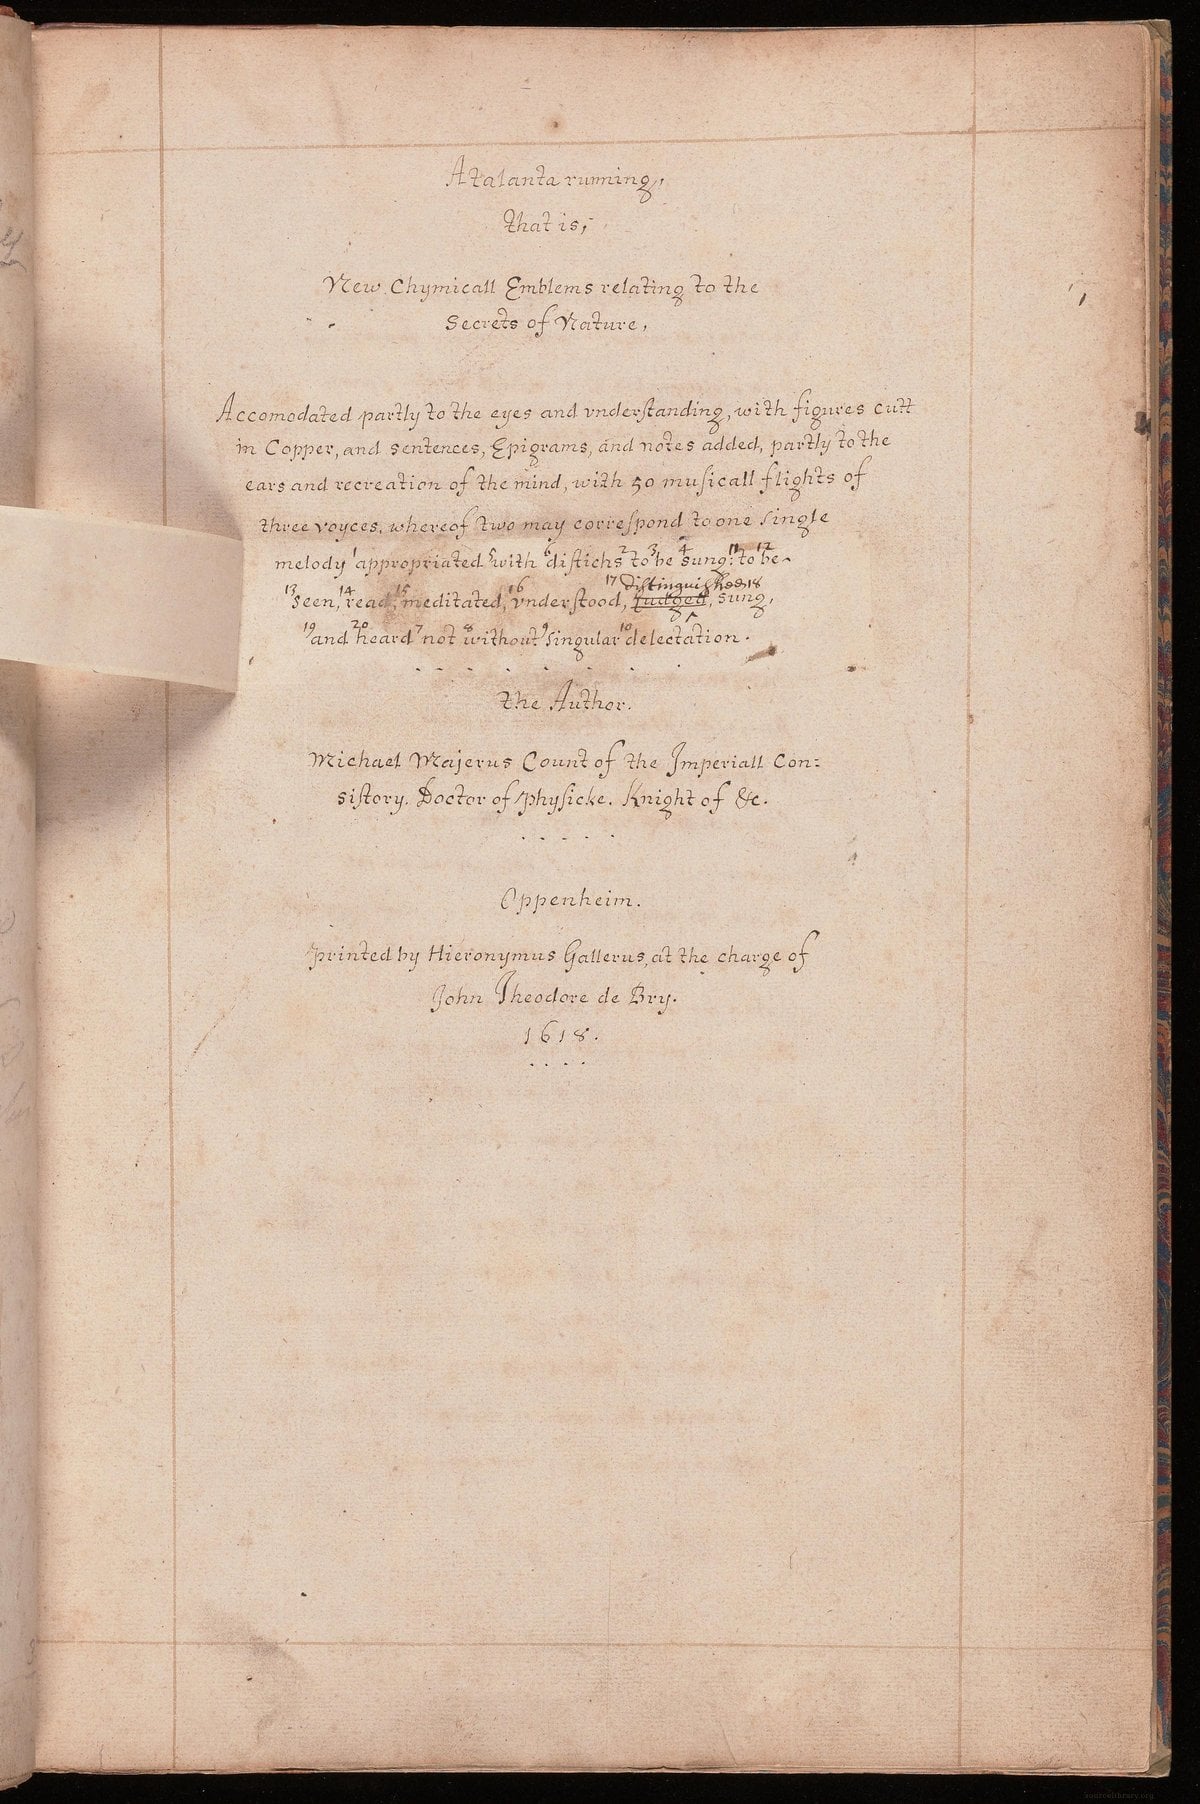 Atalanta running,
that is,
New Chymicall Emblems relating to the
Secrets of Nature,
Accomodated partly to the eyes and vnderstanding, with figures cutt
in Copper, and sentences, Epigrams, and notes added, partly to the
ears and recreation of the mind, with 50 musicall flights of
three voyces, whereof two may correspond to one single
melody 1 appropriated 5 with 6 distichs 2 to 3 be 4 sung: 11 to 12 be
17 distinguished 18
13 seen, 14 read, 15 meditated, 16 vnderstood, judged, sung,
19 and 20 heard 7 not 8 without 9 singular 10 delectation.
the Author.
Michael Majerus Count of the Imperiall Con:
sistory. Doctor of Physicke. Knight of &c.
Oppenheim.
Printed by Hieronymus Gallerus, at the charge of
John Theodore de Bry.
1618.
sourcelibrary.org